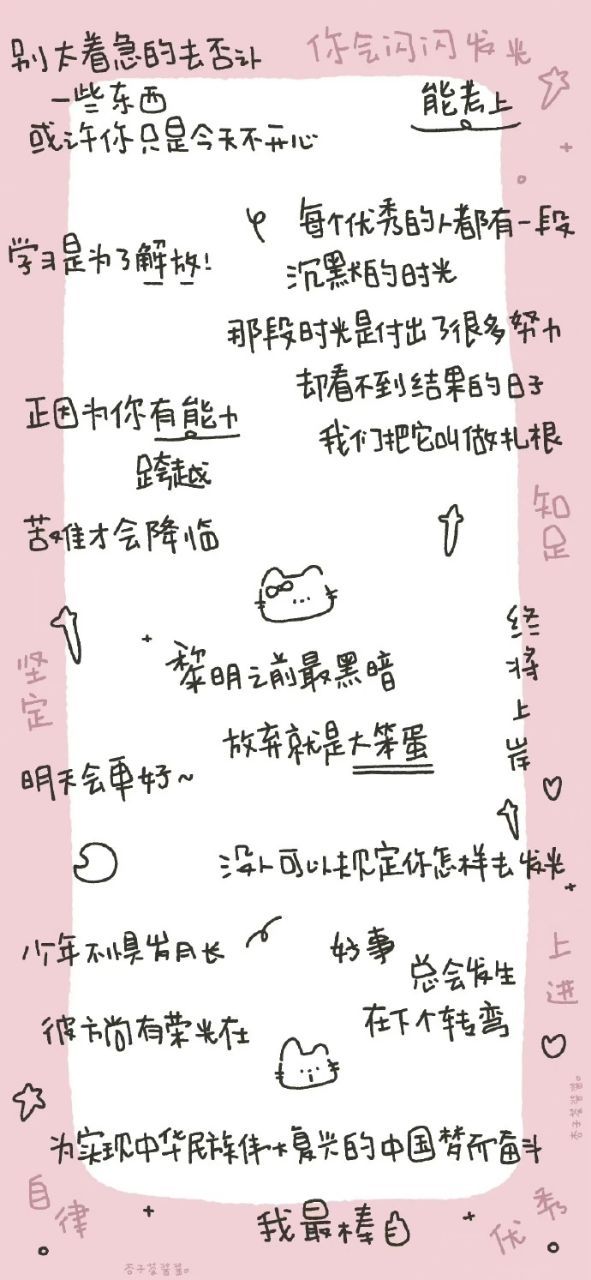 别太着急的去否认
一些东西
或许你只是今天不开心
你会闪闪发光
能考上
学习是为了解放!
每个优秀的人都有一段
沉默的时光
那段时光是付出了很多努力
却看不到结果的日子
我们把它叫做扎根
正因为你有能力
跨越
苦难才会降临
知足
坚定
黎明之前最黑暗
放弃就是大笨蛋
终将上岸
明天会更好~
没人可以规定你怎样去发光
少年不惧岁月长
彼方尚有荣光在
好事
总会发生
在下个转弯
上进
为实现中华民族伟大复兴的中国梦而奋斗
自律
我最棒
优秀